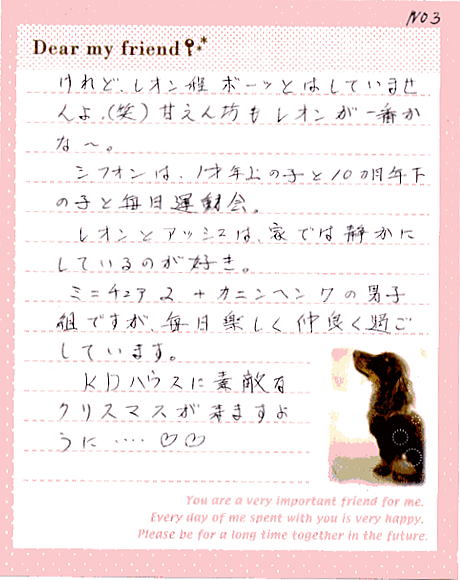 NO3
Dear my friend
けれど、レオン程 ボーッとはしていませ
んよ。(笑) 甘えん坊も レオンが 一番か
な〜。
シフォンは、1才年上の子と10カ月年下
の子と毎日運動会。
レオンとアッシスは、家では静かに
しているのが好き。
ミニチュア2+カニンヘン7の男子
組ですが、毎日楽しく仲良く過ご
しています。
KDハウスに素敵な
クリスマスが来ますよ
うに‥‥♡♡
You are a very important friend for me.
Every day of me spent with you is very happy.
Please be for a long time together in the future.